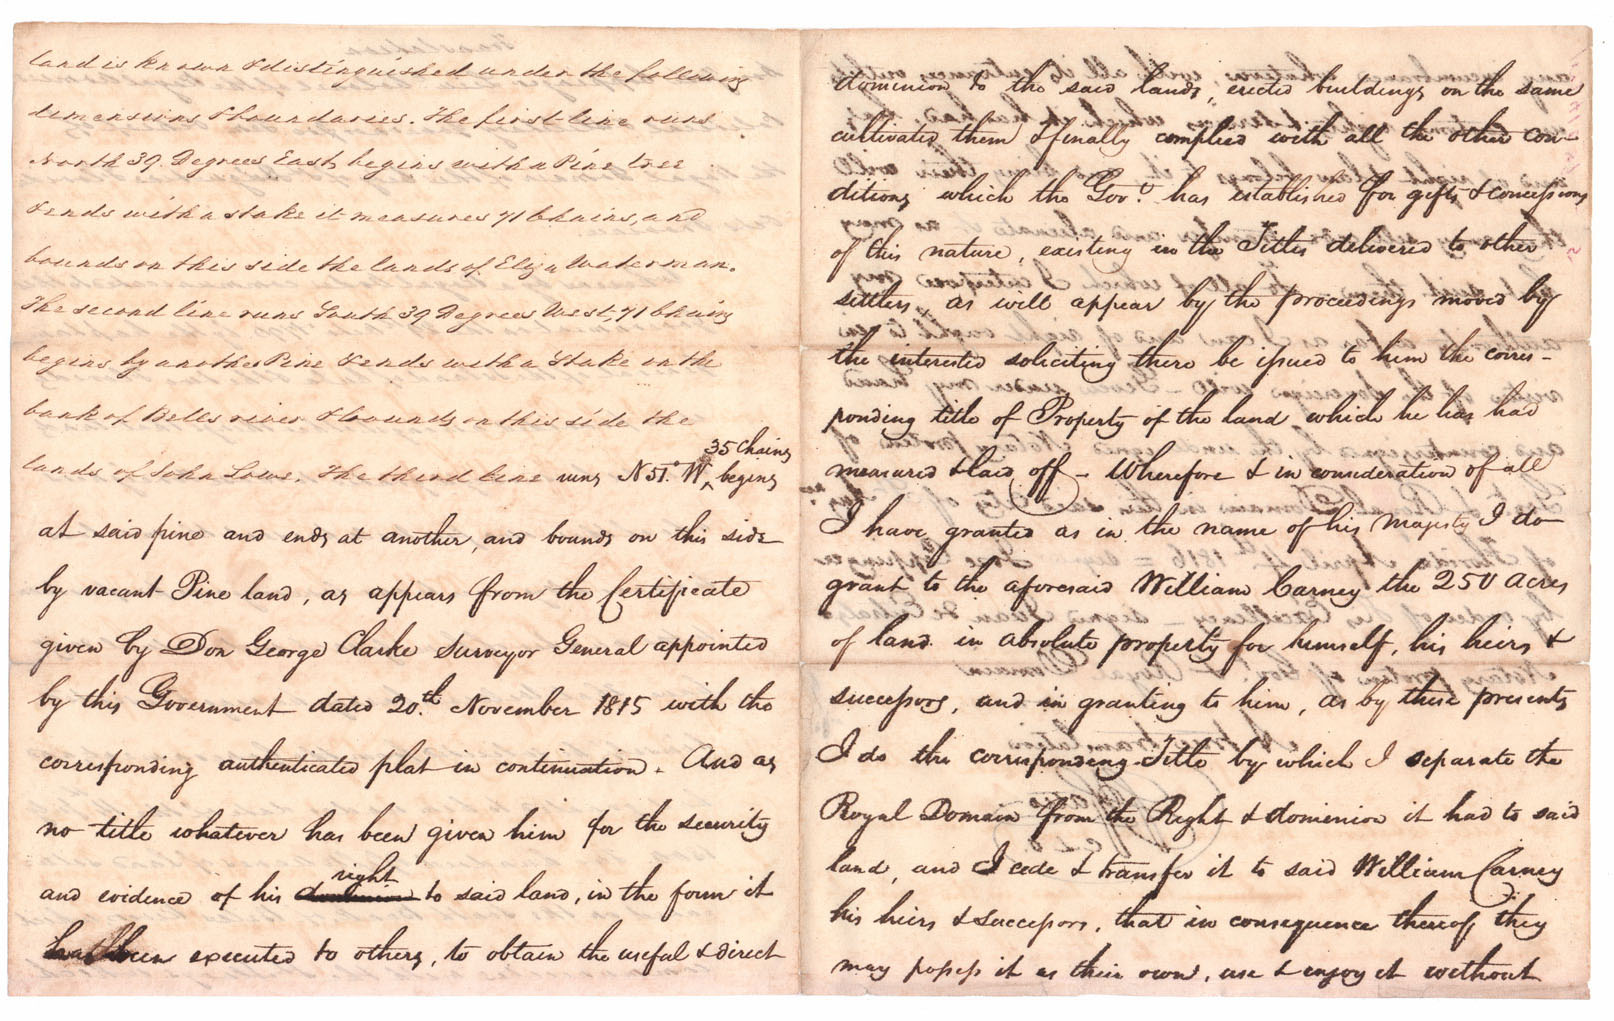 land is known & distinguished under the following
dimensions & boundaries. The first line runs
North 39 Degrees East, begins with a Pine tree
& ends with a stake it measures 71 Chains, and
bounds on this side the lands of Eliza Waterman.
The second line runs South 39 Degrees West, 71 Chains
begins by another Pine & ends with a Stake on the
bank of Bells river & bounds on this side the
35 Chains
lands of John Lowe. The third line runs N 51° W ^ begins
at said pine and ends at another, and bounds on this side
by vacant Pine land, as appears from the Certificate
given by Don George Clarke Surveyor General appointed
by this Government dated 20th November 1815 with the
corresponding authenticated plat in continuation. And as
no title whatever has been given him for the security
right
and evidence of his dominion to said land, in the form it
hath been executed to others, to obtain the useful & direct
dominion to the said lands, erected buildings on the same
cultivated them & finally complied with all the other con-
ditions which the Govt. has established for gifts & concessions
of this nature, existing in the Titles delivered to other
settlers as will appear by the proceedings moved by
the interested soliciting there be issued to him the corres-
ponding title of Property of the land which he has had
measured & laid off - Wherefore & in consideration of all
I have granted as in the name of his Majesty I do
grant to the aforesaid William Carney the 250 acres
of land in absolute property for himself, his heirs &
successors, and in granting to him, as by these presents
I do the corresponding Title by which I separate the
Royal Domain from the Right & dominion it had to said
land, and I cede & transfer it to said William Carney
his heirs & successors, that in consequence thereof they
may possess it as their own, use & enjoy it without